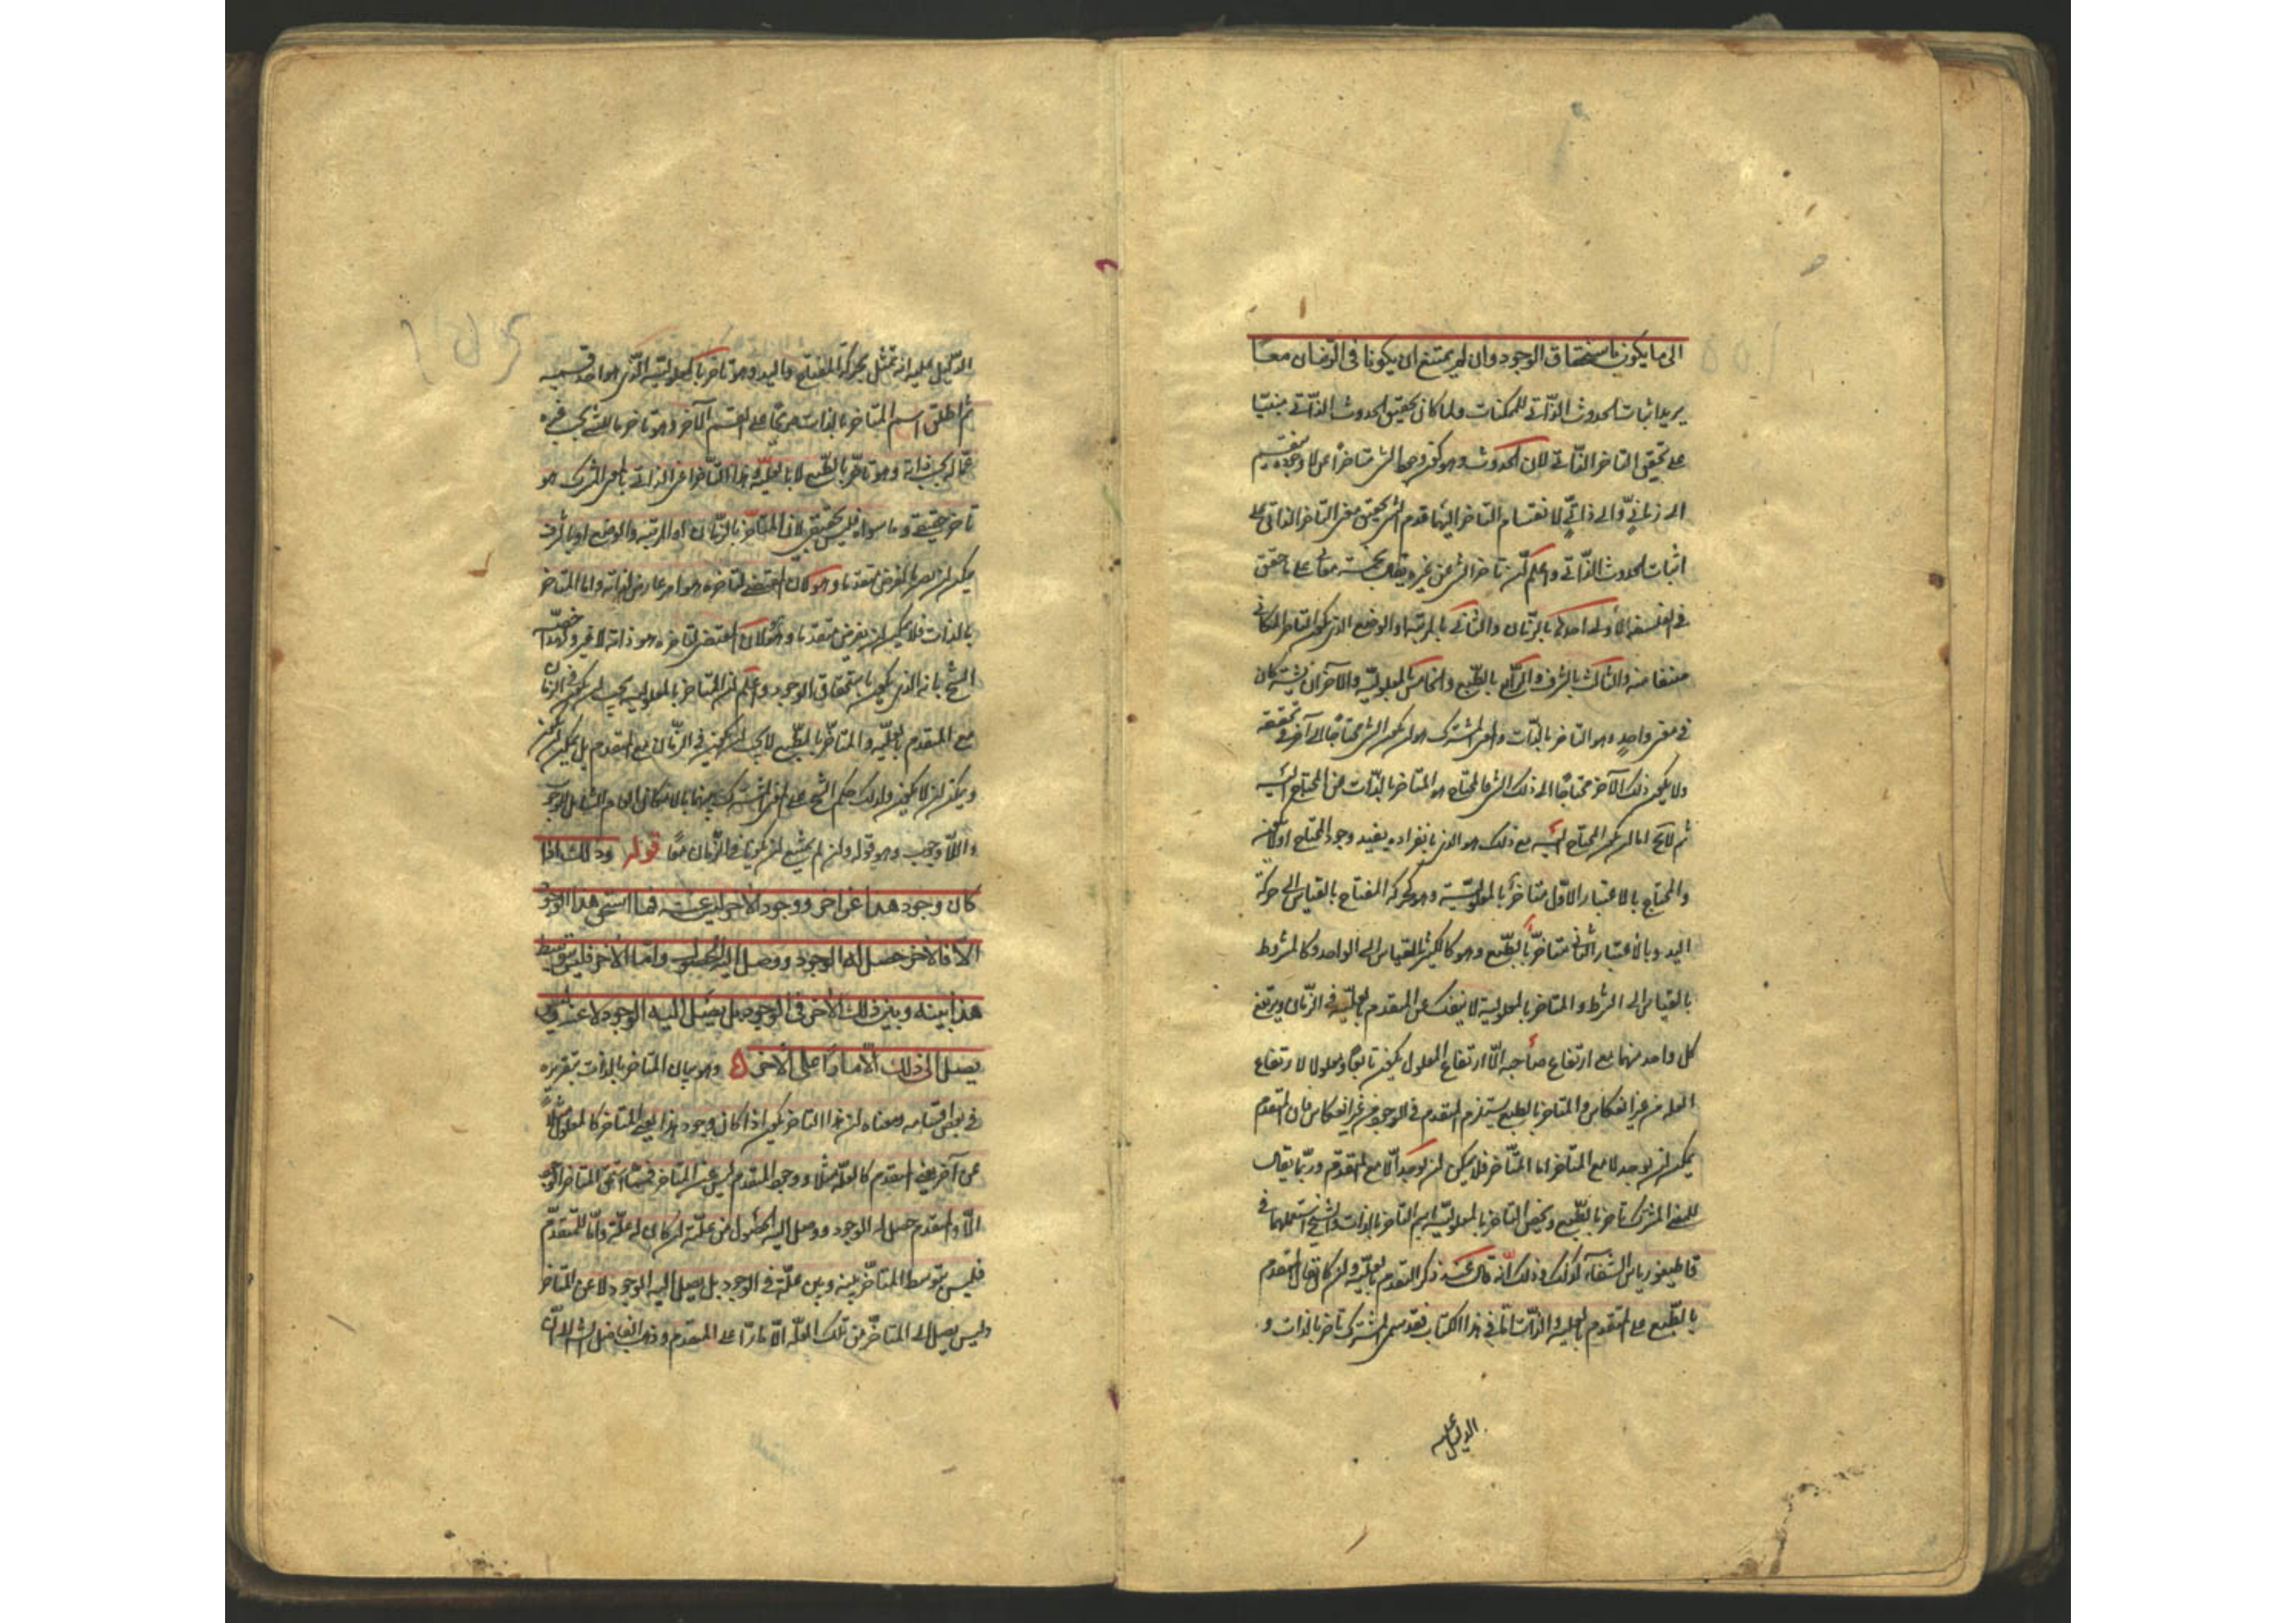 الى ما يكون باستحقاق الوجود وان لم يمتنع ان يكونا فى الزمان معًا
يريد اثبات الحدوث الذّاتى للممكنات ولما كان تحقيق الحدوث الذّاتى مبنيّا
على تحقيق التاخر الذّاتى لان الحدوث وهو كون وجود الشئ متاخرًا عن لا وجوده ينقسم
الى زمانىّ والى ذاتىّ لانقسام التاخر اليهما قدم الشيخ تحقيق معنى التاخر الذاتى على
اثبات الحدوث الذّاتى واعلم ان تاخر الشئ عن غيره يقال بخمسة معان على ما حقق
فى الفلسفة الاولى احدها بالزمان والثانى بالمرتبة او الوضع الذى يكون التاخر المكانى
صنفا منه والثالث بالشرف والرابع بالطّبع والخامس بالمعلوليّة والاخيران يشتركان
فى معنى واحد وهو التاخر بالذّات والمعنى المشترك هو ان يكون الشئ محتاجا الى آخر فى تحققه
ولا يكون ذلك الآخر محتاجًا الى ذلك الشئ فالمحتاج هو المتاخر بالذّات عن المحتاج اليه
ثم لا يخ اما ان يكون المحتاج اليه مع ذلك هو الذى بانفراده يفيد وجود المحتاج او لا يكون
والمحتاج بالاعتبار الاوّل متاخر بالمعلوليّة وهو كحركة المفتاح بالقياس الى حركة
اليد وبالاعتبار الثانى متاخر بالطّبع وهو كالكثير بالقياس الى الواحد وكالمشروط
بالقياس الى الشرط والمتاخر بالمعلولية لا ينفك عن المتقدم بالعلّية فى الزّمان ويرتفع
كل واحد منهما مع ارتفاع صاحبه الّا ان ارتفاع المعلول يكون تابعًا ومعلولا لارتفاع
العلة من غير انعكاس والمتاخر بالطبع يستلزم المتقدم فى الوجود من غير انعكاس فان المتقدم
يمكن ان يوجد لا مع المتاخر اما المتاخر فلا يمكن ان يوجد الّا مع المتقدّم وربّما يقال
للمعنى المشترك تاخر بالطّبع ويخص التاخر بالمعلوليّة باسم التاخر بالذات والشيخ استعملهما فى
قاطيغورياس الشفاء كذلك وذلك انّه قال عند ذكر التقدم بالعلّية وان كان يقال المتقدم
بالطّبع على المتقدم بالعلية والذّات امّا فى هذا الكتاب فقد سمى المشترك تاخرا بالذات و
الدليل عليه
الدّليل عليه انه تمثّل بحركة المفتاح واليد وهو تاخر بالمعلولية الذى هو احد قسميه
ثم اطلق اسم المتاخر بالذات صريحًا على القسم الآخر وهو تاخر ما للشئ بحسب غيره
عمّا له بحسب ذاته وهو تاخّر بالطّبع لا بالعليّة وهذا التّاخر اعنى الذاتى بالمعنى المشترك هو
تاخر حقيقى وما سواه فليس بحقيقى لان المتاخر بالزمان او المرتبة والوضع او بالشرف
يمكن ان يصير بالفرض متقدما وهو هو لان المقتضى لتاخره هو امر عارض لذاته واما المتاخر
بالذات فلا يمكن ان يفرض متقدما وهو هو لان المقتضى لتاخره هو ذاته لا غير ولهذا خصّه
الشيخ بانه الذى يكون باستحقاق الوجود واعلم ان المتاخر بالمعلولية يجب ان يكون فى الزمان
مع المتقدم بالعلّية والمتاخّر بالطّبع لا يجب ان يكون فى الزّمان مع المتقدم بل يمكن ان يكون
ويمكن ان لا يكون ولذلك حكم الشيخ على المعنى المشترك بينهما بالامكان العام الشامل للوجوب
واللّا وجوب وهو قوله وان لم يمتنع ان يكونا فى الزّمان معًا قوله وذلك اذا
كان وجود هذا عن اخر ووجود الاخر ليس عنه فما استحق هذا الوجود
الّا والآخر حصل له الوجود ووصل اليه الحصول وامّا الاخر فليس يتوسط
هذا بينه وبين ذلك الاخر فى الوجود بل يصل اليه الوجود لا عنه وليس
يصل الى ذلك الّا مارّا على الاخر وهو بيان المتاخر بالذات بتقريره
فى بعض اقسامه ومعناه ان هذا التاخر يكون اذا كان وجود هذا يعنى المتاخر كالمعلول مثلًا
عن آخر يعنى المتقدم كالعلّة مثلا ووجود المتقدم ليس عن المتاخر فما استحق المتاخر الوجود
الّا والمتقدم حصل له الوجود ووصل اليه الحصول من علّته ان كان له علّة وامّا المتقدّم
فليس يتوسط المتاخّر بينه وبين علّته فى الوجود بل يصل اليه الوجود لا عن المتاخر
وليس يصل الى المتاخّر من تلك العلّة الّا مارّا على المتقدم وذهب الفاضل الشارح الى ان